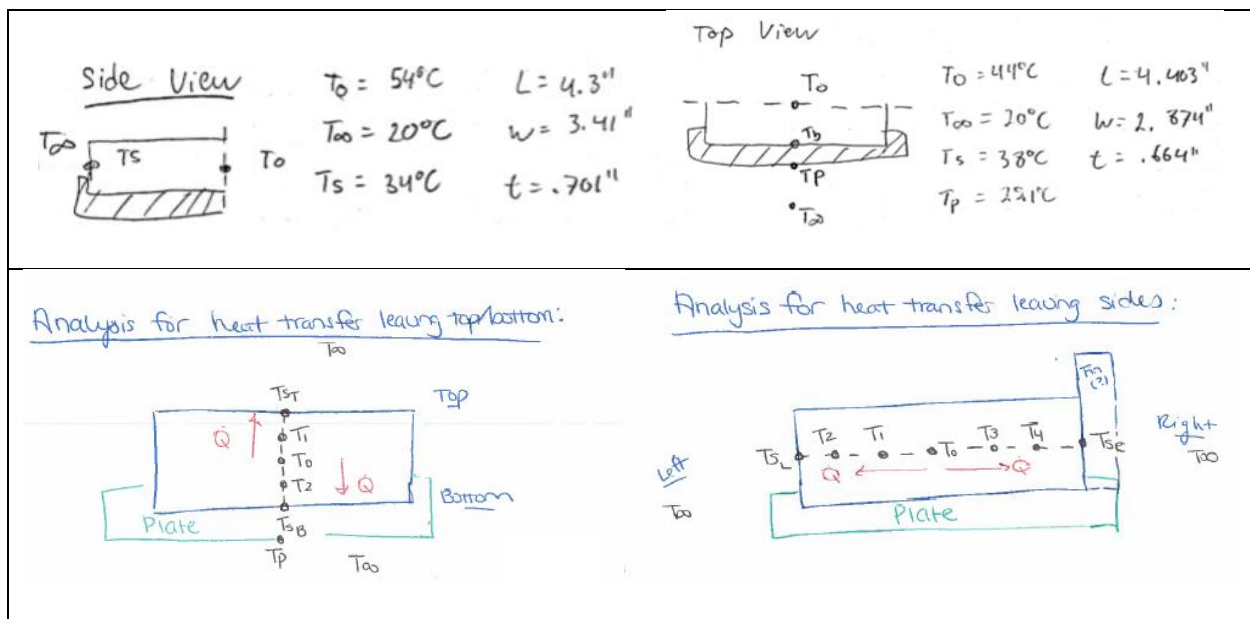 Side View
T0 = 54°C
L = 4.3"
T∞ = 20°C
w = 3.41"
Ts = 34°C
t = .701"
T∞
TS
To
Top View
To = 44°C
L = 4.403"
T∞ = 20°C
W = 2.874"
Ts = 38°C
t = .664"
Tp =
To
Tb
TP
T∞
Analysis for heat transfer leaving top/bottom:
T∞
TsT
Top
Q̇
T1
To
T2
Q̇
Bottom
Plate
TsB
Tp
T∞
Analysis for heat transfer leaving sides:
Fin
(?)
Right
T∞
TsL
T2
T1
To
T3
T4
TsR
Q̇
Q̇
Left
T∞
Plate